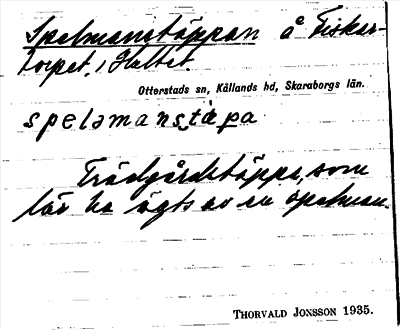 Spelmanstäppan å Fiskar-
torpet, i Hallet.
Otterstads sn, Kållands hd, Skaraborgs län.
spelamanstäpa
Trädgårdstäppa, som
lär ha ägts av en spelman.
THORVALD JONSSON 1935.